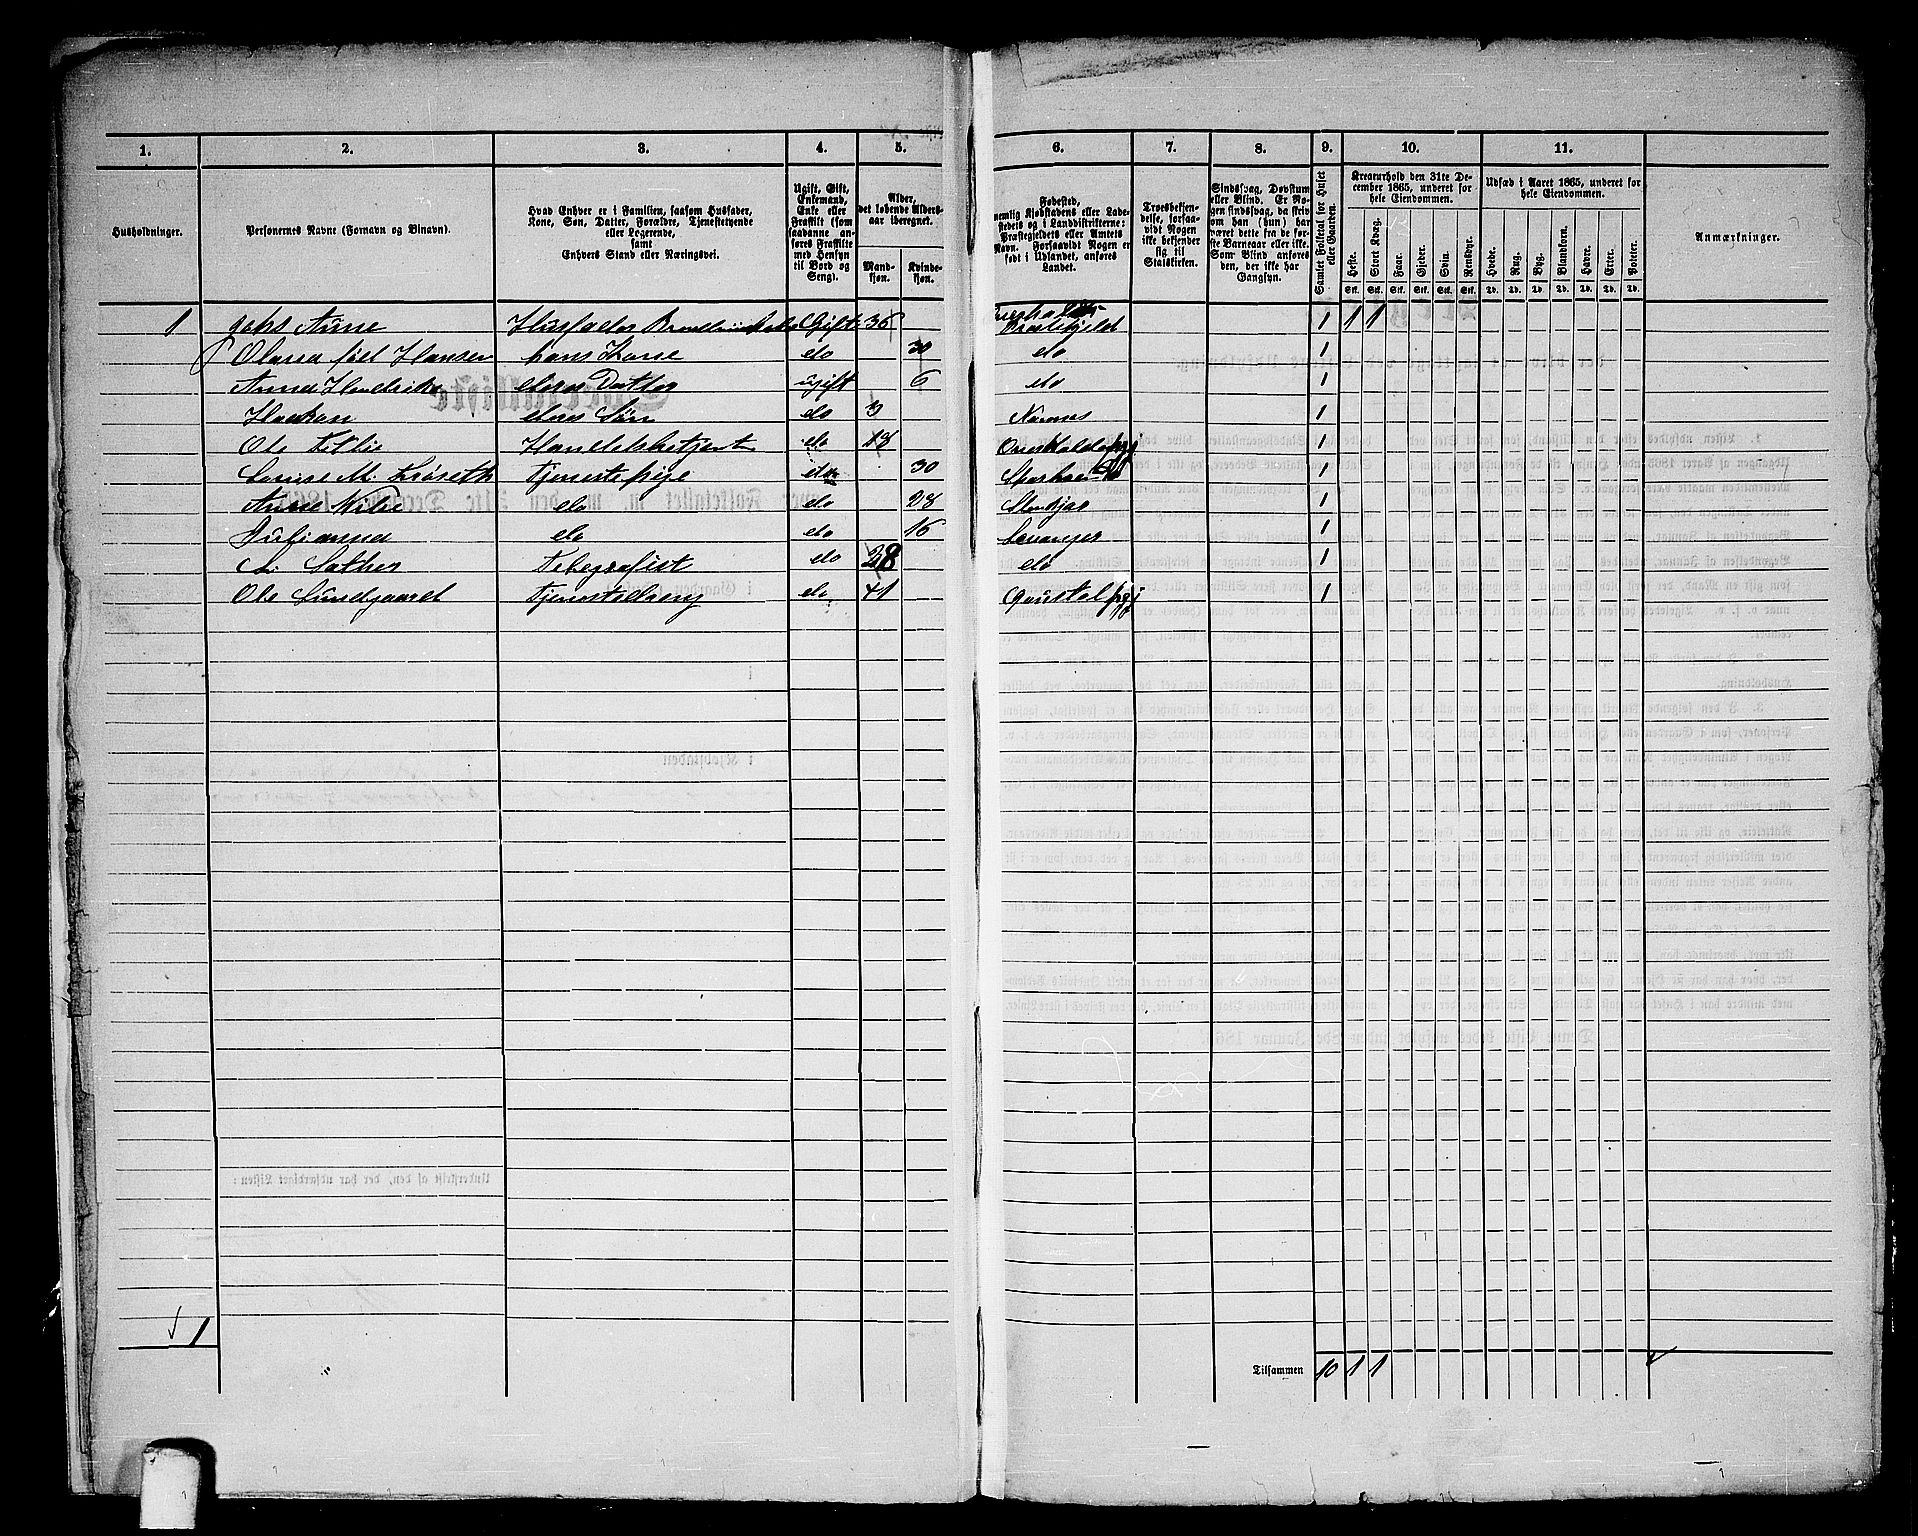 1. 2. 3. 4. 5. 6. 7. 8. 9. 10. 11.
Husholdninger.
Personernes Navne (Fornavn og Binavn).
Hvad Enhver er i Familien, saasom Husfader, Kone, Søn, Datter, Forældre, Tjenestetyende eller Logerende, samt Enhvers Stand eller Næringsvei.
Ugift, Gift, Enkemand, Enke eller Fraskilt (som saadanne anføres Fraskilte med Hensyn til Bord og Seng).
Alder, det løbende Alders-aar iberegnet.
Mand-kjøn. Kvinde-kjøn.
Fødested, nemlig Kjøbstadens eller Ladestedets og i Landdistrikterne: Præstegjeldets eller Amtets Navn. Forsaavidt Nogen er født i Udlandet, anføres Landet.
Troesbekjendelse, forsaavidt Nogen ikke bekjender sig til Statskirken.
Sindssvag, Døvstum eller Blind. Er Nogen sindssvag, da skrives om han (hun) har været dette fra de første Barneaar eller ikke. Som Blind anføres den, der ikke har Gangsyn.
Samlet Folketal for Huset eller Gaarden.
Kreaturhold den 31te December 1865, underet for hele Eiendommen.
Heste. Stort Kvæg. Faar. Gjeder. Svin. Rensdyr.
Stk. Stk. Stk. Stk. Stk. Stk.
Udsæd i Aaret 1865, underet for hele Eiendommen.
Hvede. Rug. Byg. Blandkorn. Havre. Erter. Poteter.
Td. Td. Td. Td. Td. Td. Td.
Anmærkninger.
1 Husfader Gift 36 Præstegjeld 1 1 1
Olana født Hansen hans Kone do 30 do 1
Anna Hendrikke deres Datter ugift 6 do 1
Haakon deres Søn do 3 Namsos 1
Ole Handelsbetjent do 18 1
Louise M. Tjenestepige do 30 1
Anne do do 28 Stenkjær 1
Julianna do do 16 Levanger 1
Telegrafist do 28 do 1
Ole Sundgaard Tjenestedreng do 41 1
1
Tilsammen 10 1 1